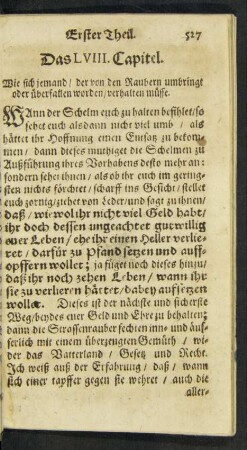 Erster Theil. 527
Das LVIII. Capitel.
Wie sich jemand / der von den Raubern umbringt
oder überfallen worden / verhalten müsse.
WAnn der Schelm euch zu halten befihlet / so
sehet euch alsdann nicht viel umb / als
hättet ihr Hoffnung einen Entsatz zu bekom-
men / dann dieses muthiget die Schelmen zu
Außführung ihres Vorhabens desto mehr an:
sondern sehet ihnen / als ob ihr euch im gering-
sten nichts förchtet / scharff ins Gesicht / stellet
euch zornig / ziehet von Leder / und sagt zu ihnen /
daß / wiewol ihr nicht viel Geld habt /
ihr doch dessen ungeachtet gutwillig
euer Leben / ehe ihr einen Heller verlie-
ret / darfür zu Pfand setzen und auff-
opffern wollet; ja füget noch dieses hinzu /
daß ihr noch zehen Leben / wann ihr
sie zu verliern hättet / dabey aufsetzen
wollet. Dieses ist der nächste und sicherste
Weg / beydes euer Geld und Ehre zu behalten:
dann die Strassenrauber fechten inn- und äus-
serlich mit einem überzeugten Gemüth / wi-
der das Vatterland / Gesetz und Recht.
Ich weiß auß der Erfahrung / daß / wann
sich einer tapffer gegen sie wehret / auch die
aller-